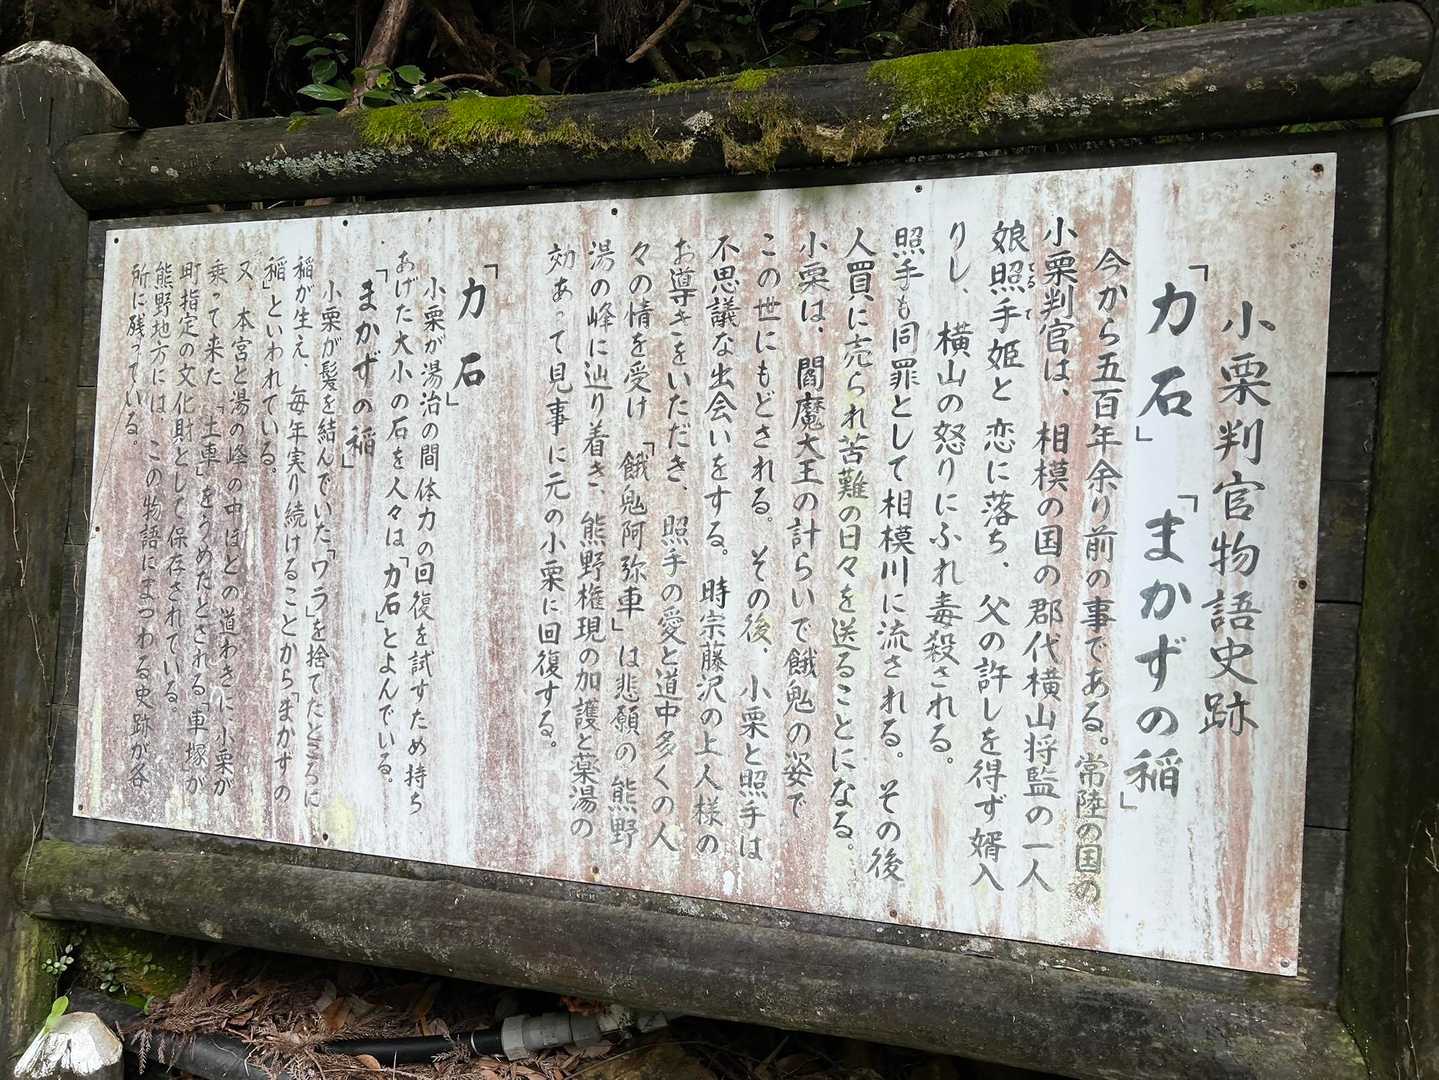 小栗判官物語史跡
「力石」「まかずの稲」
今から五百年余り前の事である。常陸の国の
小栗判官は、相模の国の郡代横山将監の一人
娘照手姫と恋に落ち、父の許しを得ず婿入
てるて
りし、横山の怒りにふれ毒殺される。
照手も同罪として相模川に流される。その後
人買に売られ苦難の日々を送ることになる。
小栗は、閻魔大王の計らいで餓鬼の姿で
この世にもどされる。その後、小栗と照手は
不思議な出会いをする。時宗藤沢の上人様の
お導きをいただき、照手の愛と道中多くの人
々の情を受け「餓鬼阿弥車」は悲願の熊野
湯の峰に辿り着き、熊野権現の加護と薬湯の
効あって見事に元の小栗に回復する。
「力石」
小栗が湯治の間体力の回復を試すため持ち
あげた大小の石を人々は「力石」とよんでいる。
「まかずの稲」
小栗が髪を結んでいた「ワラ」を捨てたところに
稲が生え、毎年実り続けることから「まかずの
稲」といわれている。
又、本宮と湯の峰の中ほどの道わきに、小栗が
乗って来た「土車」をうめたとされる「車塚」が
町指定の文化財として保存されている。
熊野地方には、この物語にまつわる史跡が各
所に残っている。